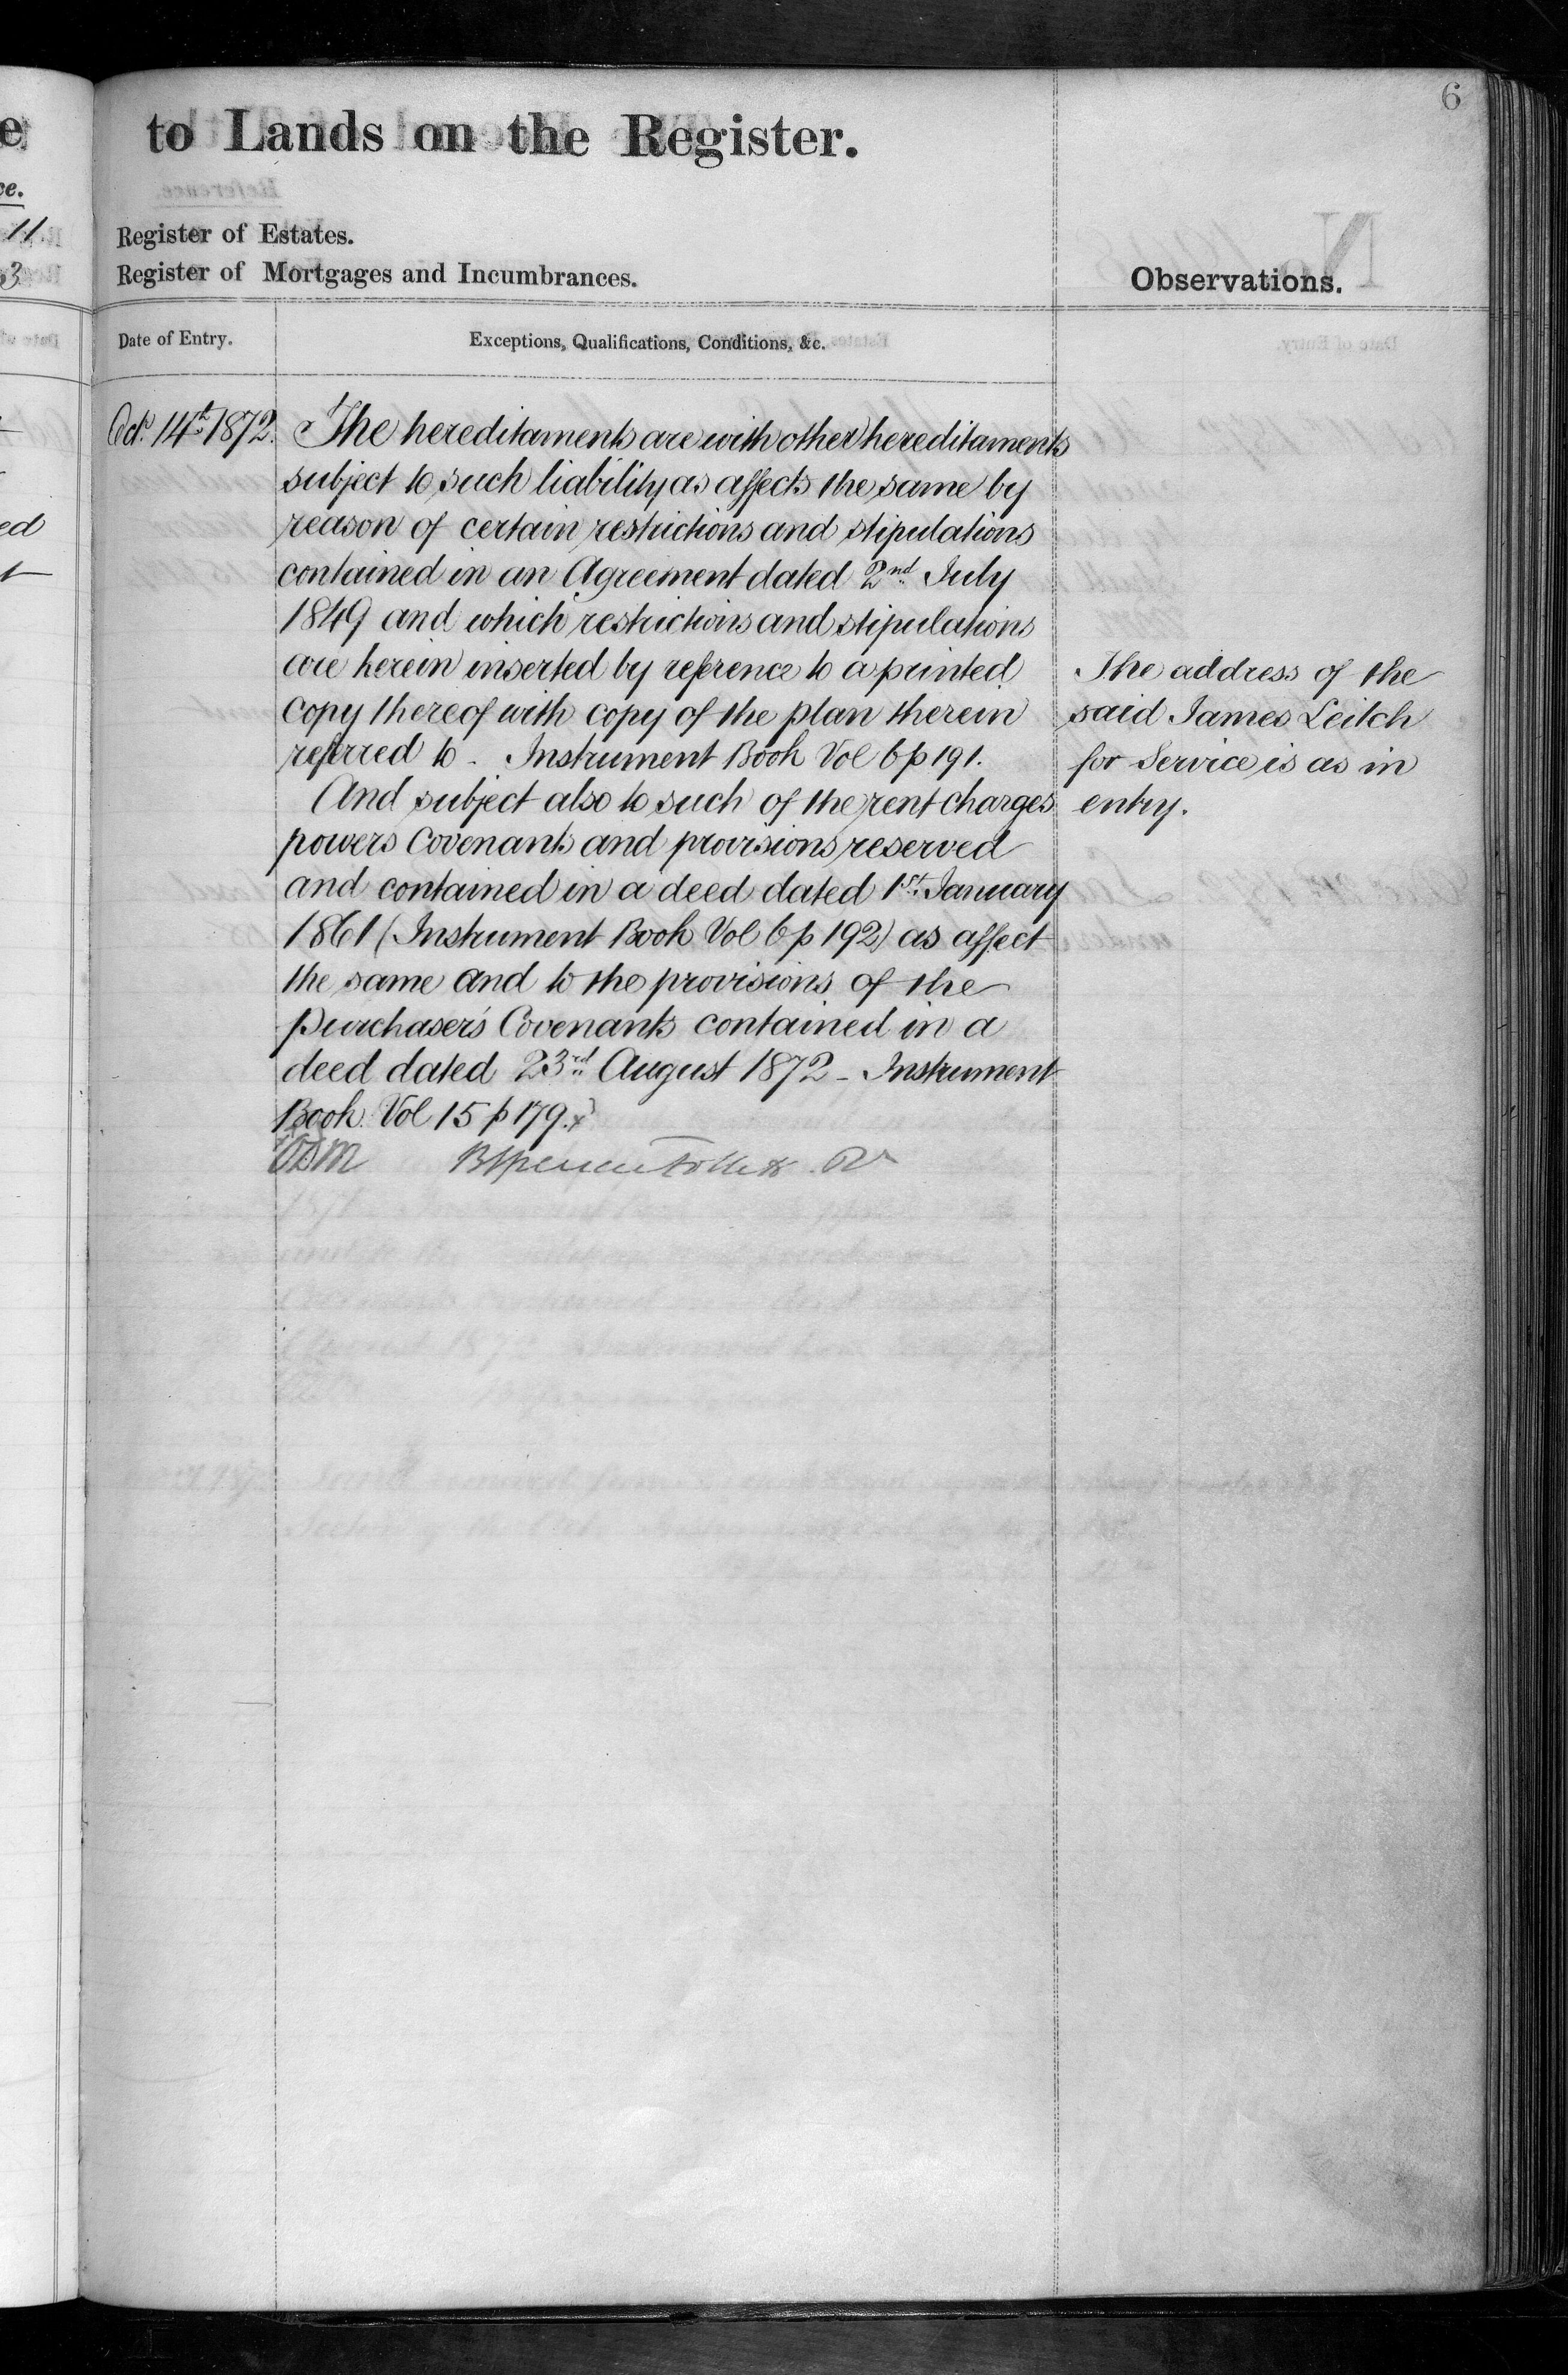 6
to Lands on the Register.
Register of Estates.
Register of Mortgages and Incumbrances.
Observations.
Date of Entry.
Exceptions, Qualifications, Conditions, &c.
Oct. 14th 1872.
The hereditaments are with other hereditaments
subject to such liability as affects the same by
reason of certain restrictions and stipulations
contained in an Agreement dated 2nd July
1849 and which restrictions and stipulations
are herein inserted by reference to a printed
copy thereof with copy of the plan therein
referred to - Instrument Book Vol 6 p 191.
And subject also to such of the rent charges
powers Covenants and provisions reserved
and contained in a deed dated 1st January
1861 (Instrument Book Vol 6 p 192) as affect
the same and to the provisions of the
Purchaser's Covenants contained in a
deed dated 23rd August 1872 - Instrument
Book Vol 15 p 179.
The address of the
said James Leitch
for Service is as in
entry.
e
ce.
11.
3
ed